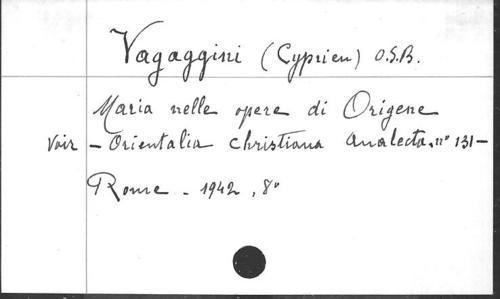 Vagaggini (Cyprien) O.S.B.
Maria nelle opere di Origene
Voir – Orientalia Christiana Analecta, n° 131 –
Rome - 1942, 8°